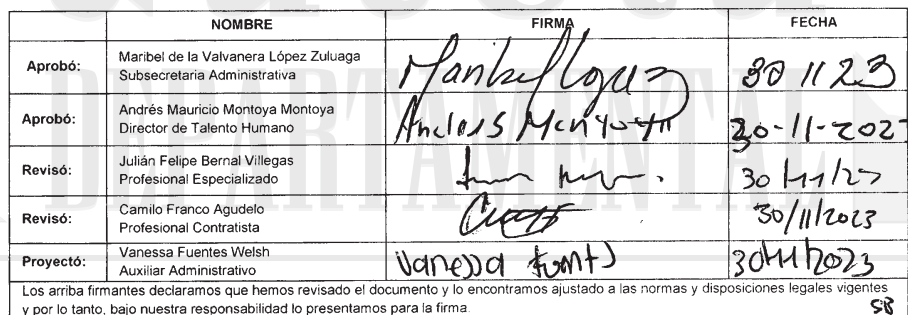 NOMBRE FIRMA FECHA
Aprobó: Maribel de la Valvanera López Zuluaga
Subsecretaria Administrativa
Maribel Lopez Z 30 11 23
Aprobó: Andrés Mauricio Montoya Montoya
Director de Talento Humano
Andres Montoya 30-11-202
Revisó: Julián Felipe Bernal Villegas
Profesional Especializado
30/11/23
Revisó: Camilo Franco Agudelo
Profesional Contratista
30/11/2023
Proyectó: Vanessa Fuentes Welsh
Auxiliar Administrativo
Vanessa 30/11/2023
Los arriba firmantes declaramos que hemos revisado el documento y lo encontramos ajustado a las normas y disposiciones legales vigentes
y por lo tanto, bajo nuestra responsabilidad lo presentamos para la firma.
SB
DEPARTAMENTAL